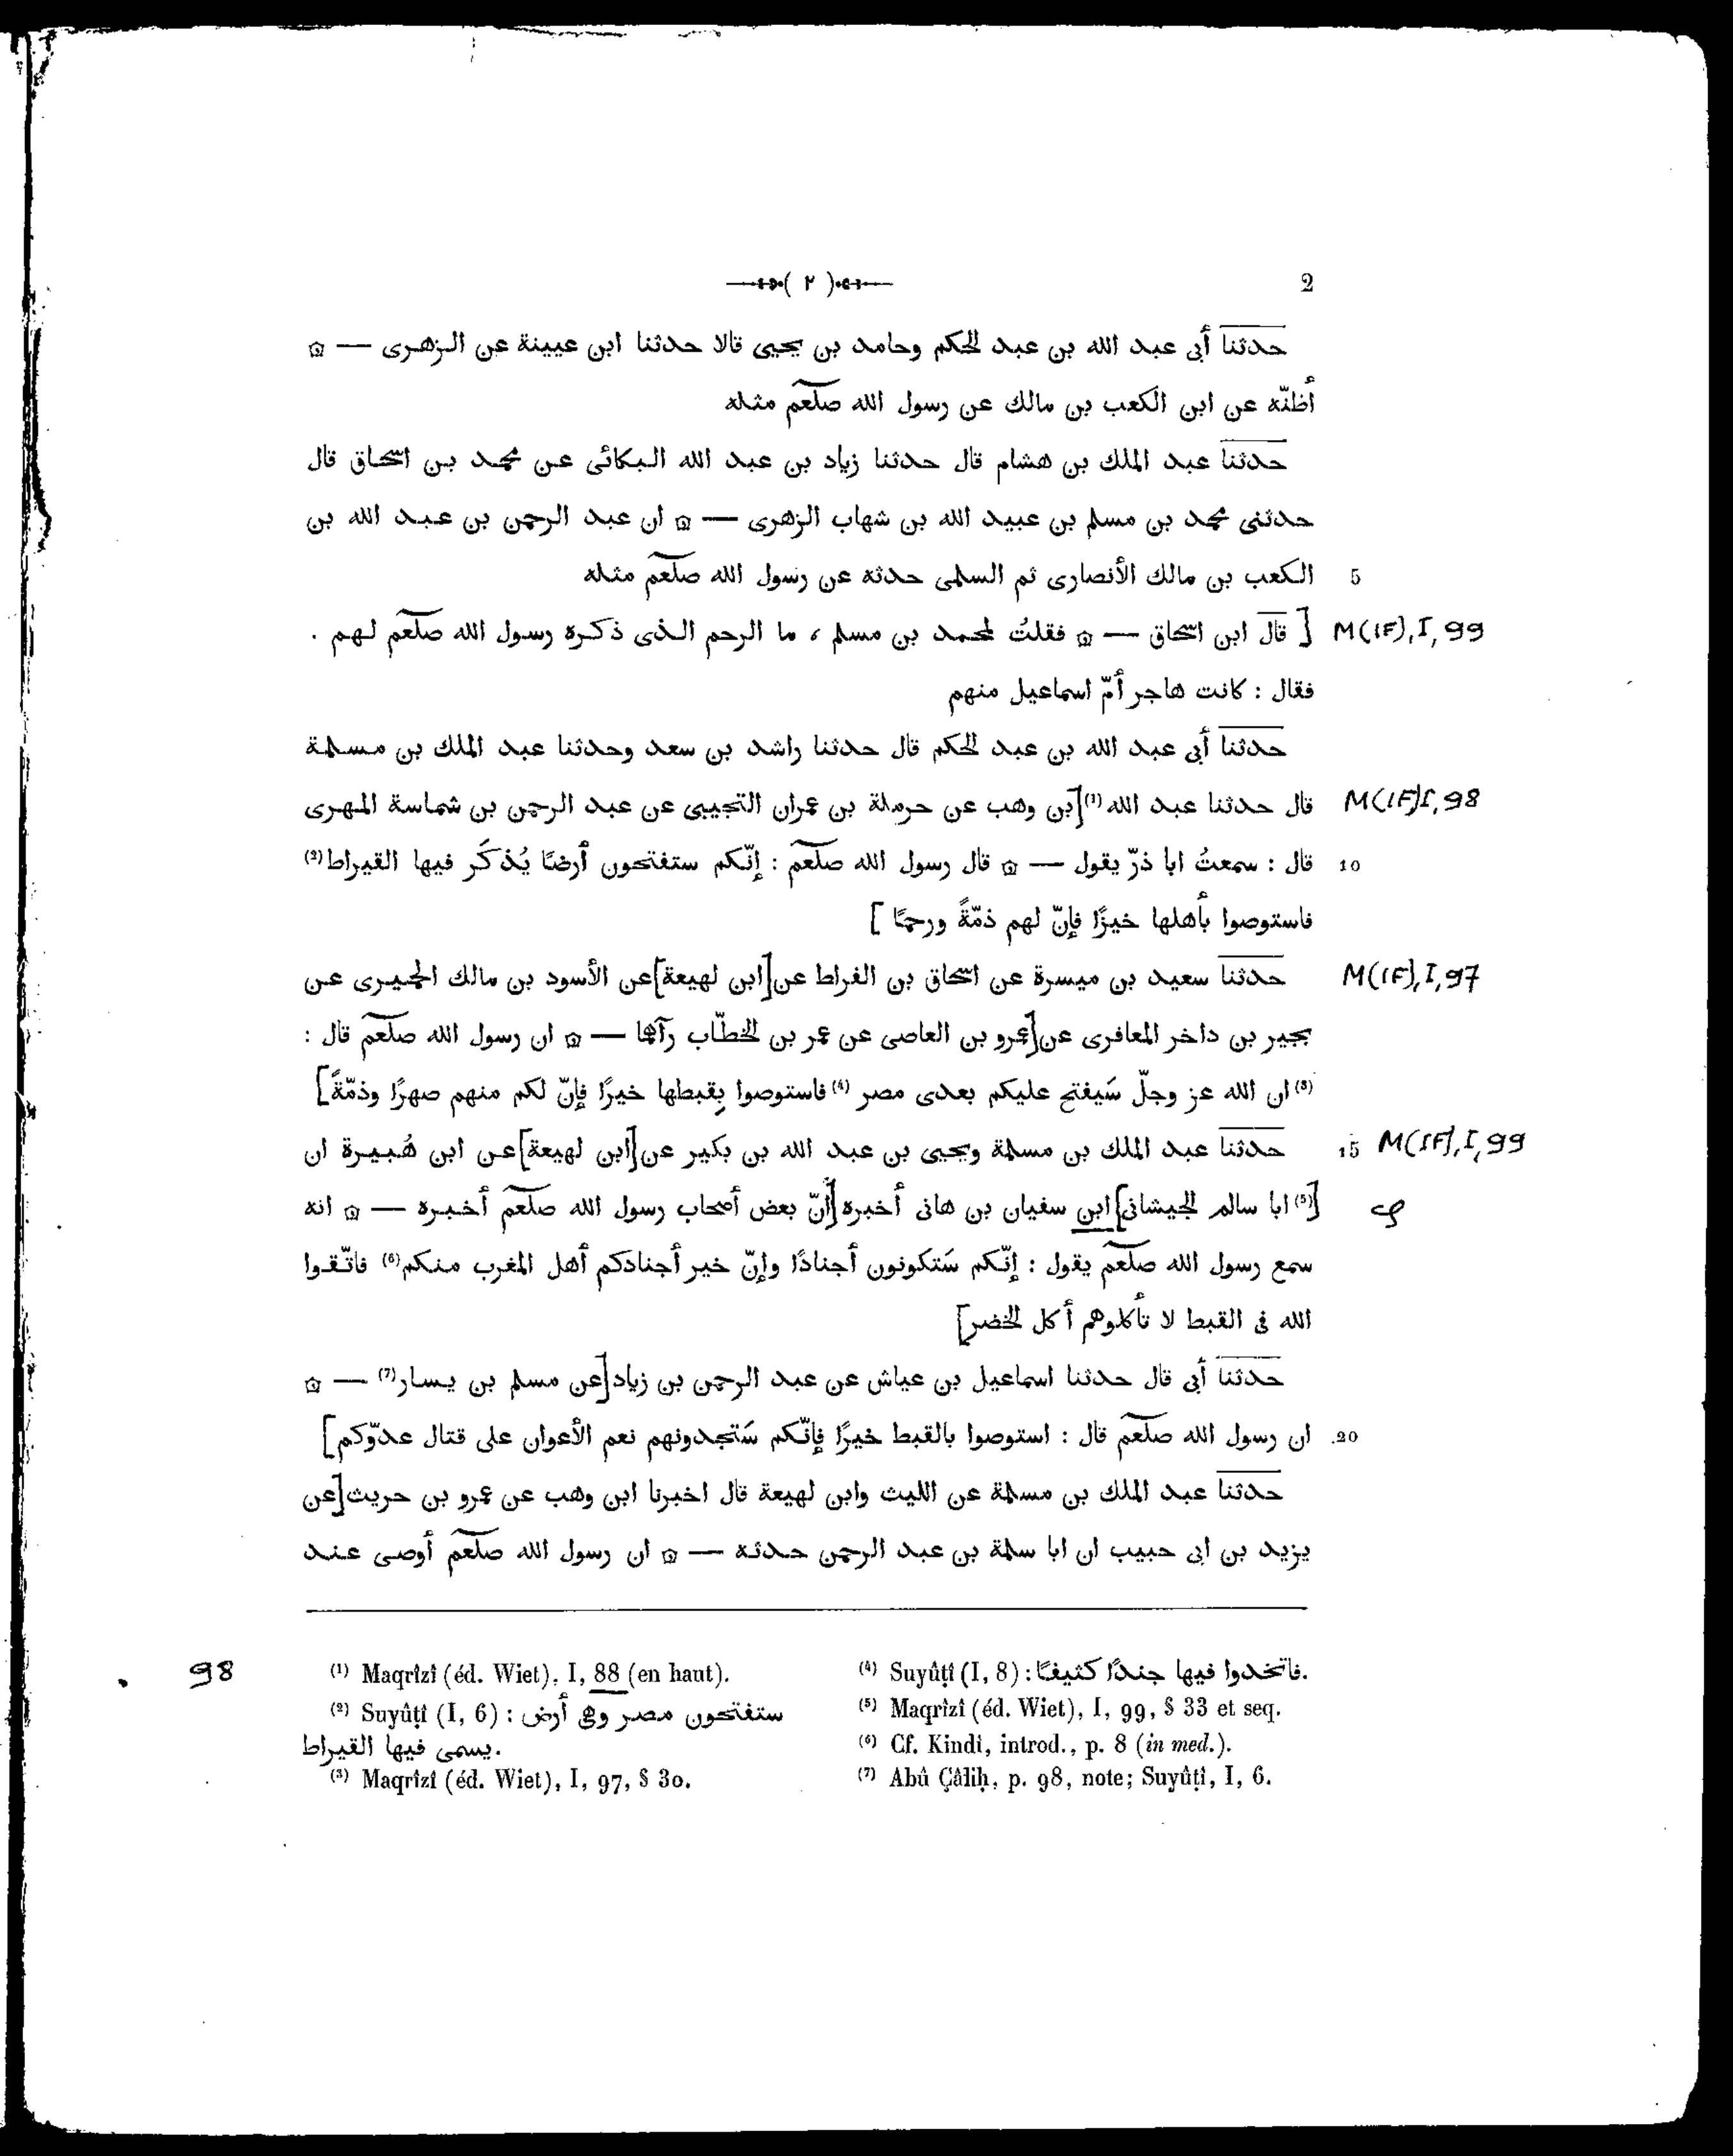 2 —( ٢ )—
حدثنا أبى عبد الله بن عبد الحكم وحامد بن يحيى قالا حدثنا ابن عيينة عن الزهرى — ۵
أظنّه عن ابن الكعب بن مالك عن رسول الله صلعم مثله
حدثنا عبد الملك بن هشام قال حدثنا زياد بن عبد الله البكائى عن محمد بن اسحاق قال
حدثنى محمد بن مسلم بن عبيد الله بن شهاب الزهرى — ۵ ان عبد الرحمن بن عبد الله بن
5 الكعب بن مالك الأنصارى ثم السلمى حدثه عن رسول الله صلعم مثله
M(IF), I, 99 [ قال ابن اسحاق — ۵ فقلتُ لمحمد بن مسلم ، ما الرحم الذى ذكره رسول الله صلعم لهم .
فقال : كانت هاجر أمّ اسماعيل منهم
حدثنا أبى عبد الله بن عبد الحكم قال حدثنا راشد بن سعد وحدثنا عبد الملك بن مسلمة
M(IF) I, 98 قال حدثنا عبد الله (1)[بن وهب عن حرملة بن عمران التجيبى عن عبد الرحمن بن شماسة المهرى
10 قال : سمعتُ ابا ذرّ يقول — ۵ قال رسول الله صلعم : إنّكم ستفتحون أرضًا يُذكَر فيها القيراط (2)
فاستوصوا بأهلها خيرًا فإنّ لهم ذمّةً ورحمًا ]
M(IF), I, 97 حدثنا سعيد بن ميسرة عن اسحاق بن الفراط عن [ابن لهيعة] عن الأسود بن مالك الحميرى عن
بحير بن داخر المعافرى عن [عمرو بن العاصى عن عمر بن الخطّاب رآهما — ۵ ان رسول الله صلعم قال :
(3) ان الله عز وجلّ سَيفتح عليكم بعدى مصر (4) فاستوصوا بِقبطها خيرًا فإنّ لكم منهم صهرًا وذمّةً]
15 M(IF), I, 99 حدثنا عبد الملك بن مسلمة ويحيى بن عبد الله بن بكير عن [ابن لهيعة] عن ابن هُبيرة ان
[(5) ابا سالم الجيشانى] ابن سفيان بن هانى أخبره [أنّ بعض أصحاب رسول الله صلعم أخبره — ۵ انه
سمع رسول الله صلعم يقول : إنّكم سَتكونون أجنادًا وإنّ خير أجنادكم أهل المغرب منكم (6) فاتّقوا
الله فى القبط لا تأكلوهم أكل الخضر]
حدثنا أبى قال حدثنا اسماعيل بن عياش عن عبد الرحمن بن زياد [عن مسلم بن يسار (7) — ۵
20 ان رسول الله صلعم قال : استوصوا بالقبط خيرًا فإنّكم سَتجدونهم نعم الأعوان على قتال عدوّكم]
حدثنا عبد الملك بن مسلمة عن الليث وابن لهيعة قال اخبرنا ابن وهب عن عمرو بن حريث [عن
يزيد بن ابى حبيب ان ابا سلمة بن عبد الرحمن حدثه — ۵ ان رسول الله صلعم أوصى عند
98 (1) Maqrîzî (éd. Wiet), I, 88 (en haut).
(2) Suyûṭî (I, 6) : ستفتحون مصر وهى أرض
يسمى فيها القيراط.
(3) Maqrîzî (éd. Wiet), I, 97, § 30.
(4) Suyûṭî (I, 8) : فاتخدوا فيها جندًا كثيفًا.
(5) Maqrîzî (éd. Wiet), I, 99, § 33 et seq.
(6) Cf. Kindi, introd., p. 8 (in med.).
(7) Abû Çâliḥ, p. 98, note; Suyûṭî, I, 6.